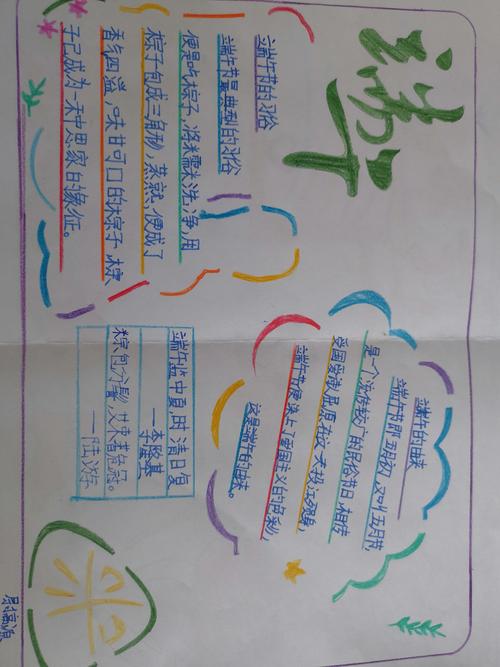 端午
端午节的习俗
端午节最典型的习俗
便是吃粽子,将米糯米洗净,用
粽子包成三角形,蒸熟,便成了
香气四溢,味甘可口的粽子,粽
子已成为一种思家的象征。
端午的由来
端午节即五月初,又叫五月节,
是一个流传较广的民俗节日,相传
爱国爱诗屈原在这一天投江殉身,
端午节便染上了爱国主义的色彩,
这是端午的由来。
端午 中夏,时清日复
—李隆基
粽包分 ,艾束著危冠。
—陆游
米